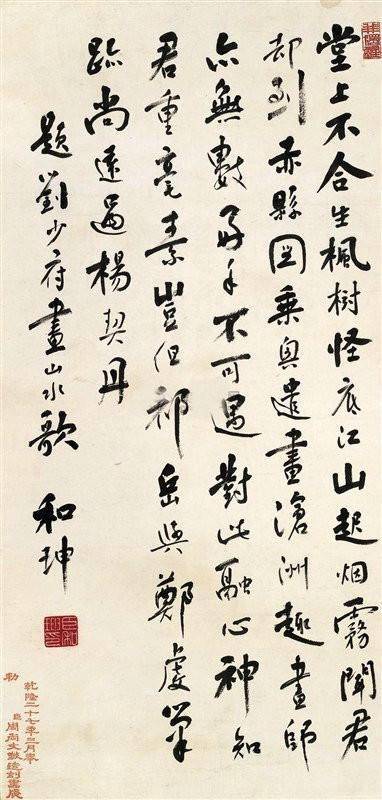 堂上不合生楓樹怪底江山起烟霧聞君
却到赤縣図乘興遣畫滄洲趣畫師
亦無數好手不可遇對此融心神知
君重毫素豈但祁岳與鄭虔筆
跡尚遠過楊契丹
題劉少府畫山水歌 和珅
乾隆二十七年三月奉
勅
臣周尚文敬